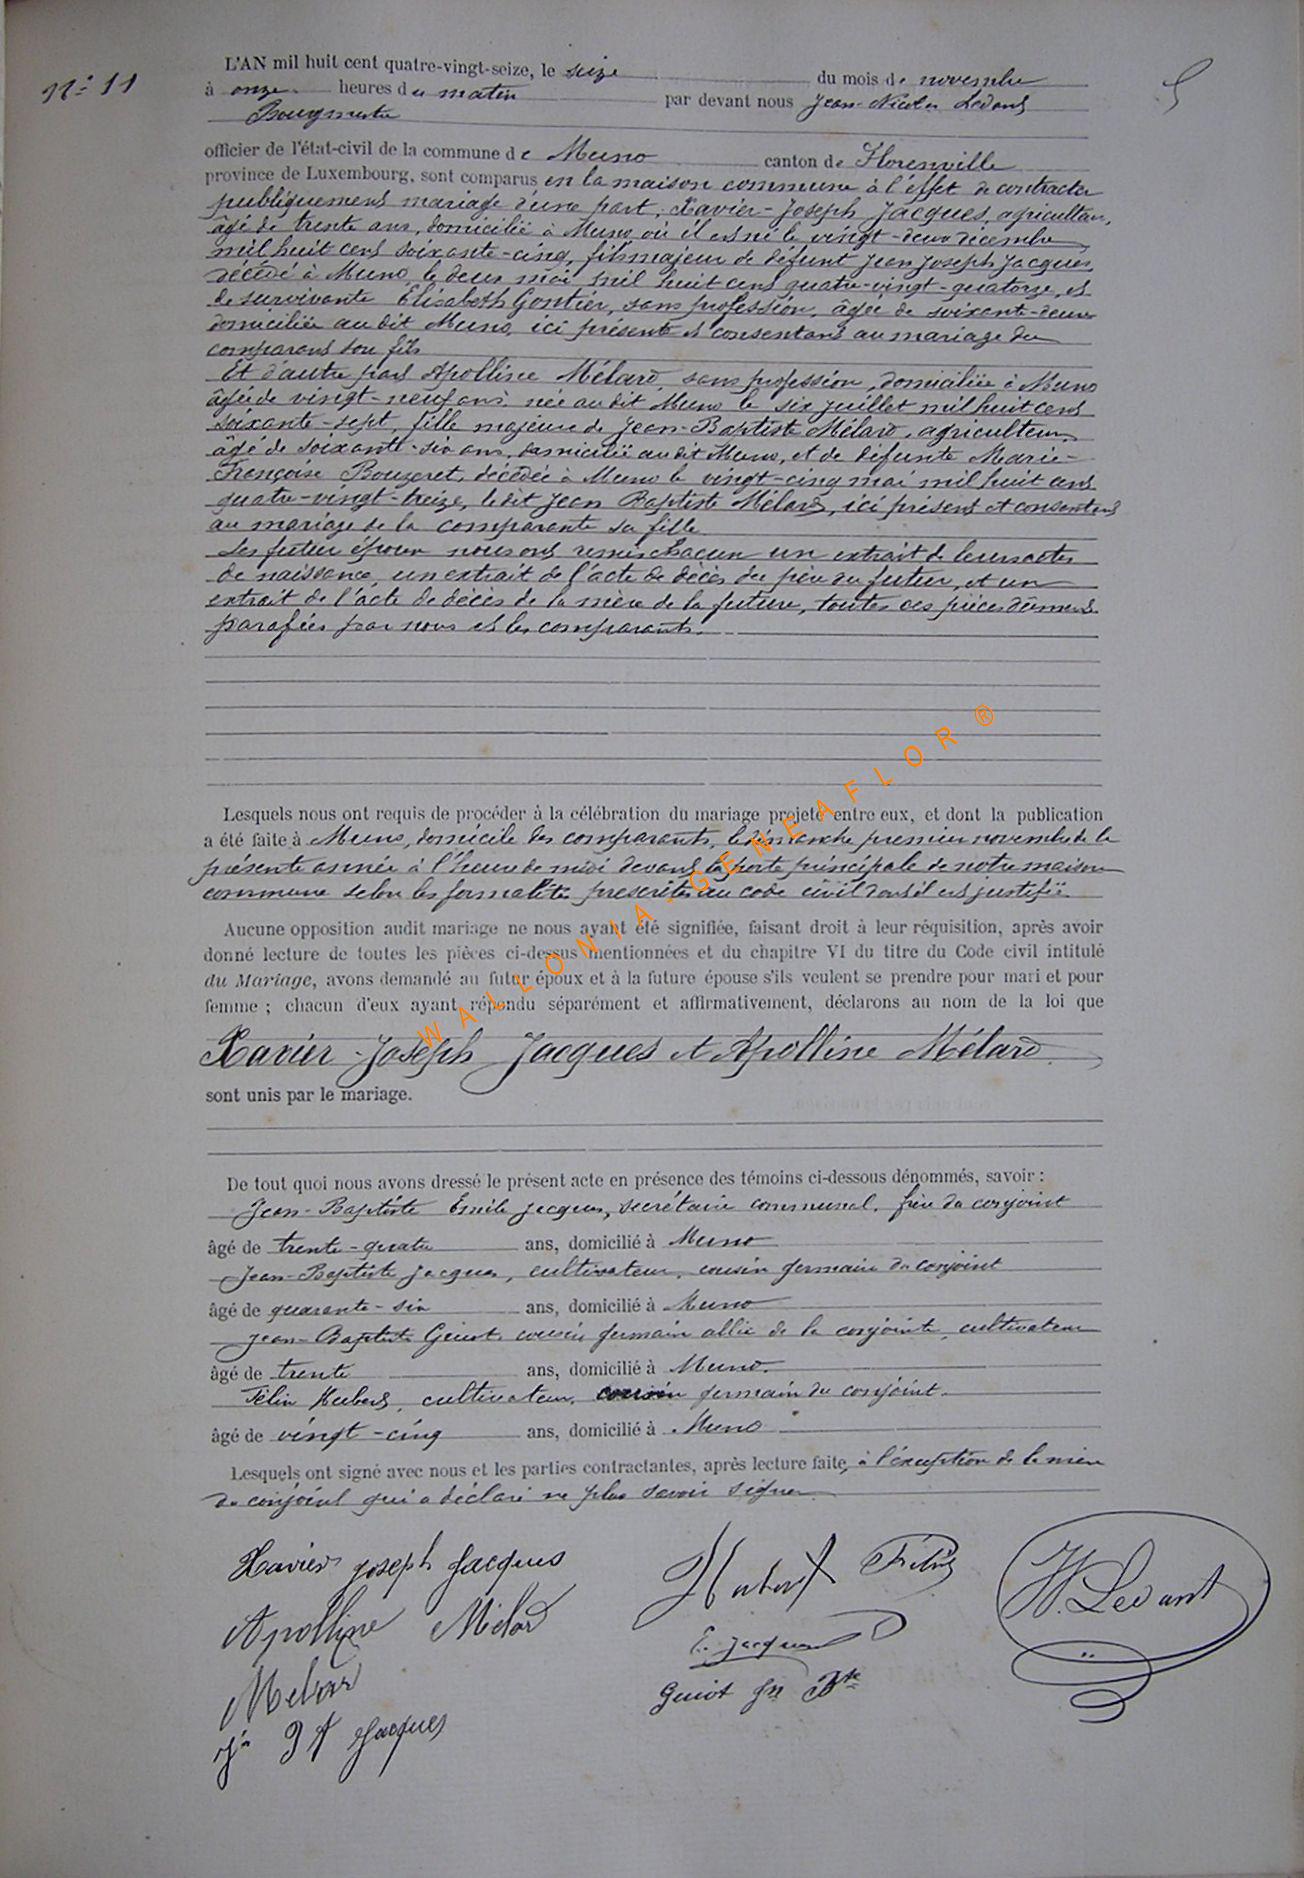 N° 11
L'AN mil huit cent quatre-vingt-seize, le seize du mois de novembre
à onze heures du matin par devant nous Jean-Nicolas Ledant
Bourgmestre
officier de l'état-civil de la commune de Muno canton de Florenville
province de Luxembourg, sont comparus en la maison commune à l'effet de contracter
publiquement mariage d'une part, Xavier-Joseph Jacques, agriculteur,
âgé de trente ans, domicilié à Muno, où il est né le vingt-deux décembre
mil huit cent soixante-cinq, fils majeur de défunt Jean Joseph Jacques,
décédé à Muno, le deux mai mil huit cent quatre-vingt-quatorze, et
de survivante Élisabeth Gontier, sans profession, âgée de soixante-deux
domiciliée au dit Muno, ici présente et consentant au mariage du
comparant son fils
Et d'autre part Apolline Mélard, sans profession, domiciliée à Muno
âgée de vingt-neuf ans, née au dit Muno le six juillet mil huit cent
soixante-sept, fille majeure de Jean-Baptiste Mélard, agriculteur,
âgé de soixante-six ans, domicilié au dit Muno, et de défunte Marie-
Françoise Bouzeret, décédée à Muno le vingt-cinq mai mil huit cent
quatre-vingt-treize, le dit Jean Baptiste Mélard, ici présent et consentant
au mariage de la comparante sa fille
Les futur époux nous ont remis chacun un extrait de leurs actes
de naissance, un extrait de l'acte de décès du père du futur, et un
extrait de l'acte de décès de la mère de la future, toutes ces pièces dûment
parafées par nous et les comparants.
Lesquels nous ont requis de procéder à la célébration du mariage projeté entre eux, et dont la publication
a été faite à Muno, domicile des comparants, le dimanche premier novembre de la
présente année à l'heure de midi devant la porte principale de notre maison
commune selon les formalités prescrites au code civil dont il est justifié.
Aucune opposition audit mariage ne nous ayant été signifiée, faisant droit à leur réquisition, après avoir
donné lecture de toutes les pièces ci-dessus mentionnées et du chapitre VI du titre du Code civil intitulé
du Mariage, avons demandé au futur époux et à la future épouse s'ils veulent se prendre pour mari et pour
femme ; chacun d'eux ayant répondu séparément et affirmativement, déclarons au nom de la loi que
Xavier-Joseph Jacques et Apolline Mélard.
sont unis par le mariage.
De tout quoi nous avons dressé le présent acte en présence des témoins ci-dessous dénommés, savoir :
Jean-Baptiste Emile Jacques, secrétaire communal, frère du conjoint
âgé de trente-quatre ans, domicilié à Muno
Jean-Baptiste Jacques, cultivateur, cousin germain du conjoint
âgé de quarante-six ans, domicilié à Muno
Jean-Baptiste Guiot cousin germain allié de la conjointe, cultivateur
âgé de trente ans, domicilié à Muno.
Félix Hubert, cultivateur, cousin germain du conjoint.
âgé de vingt-cinq ans, domicilié à Muno
Lesquels ont signé avec nous et les parties contractantes, après lecture faite, à l'exception de la mère
du conjoint qui a déclaré ne plus savoir signer
Xavier Joseph Jacques
Hubert Félix
N. Ledant
Apolline Mélard
E. Jacques
Melard
Guiot Jn Bte
Jn Bt Jacques
WALLONIA-GENEAFLOR ®